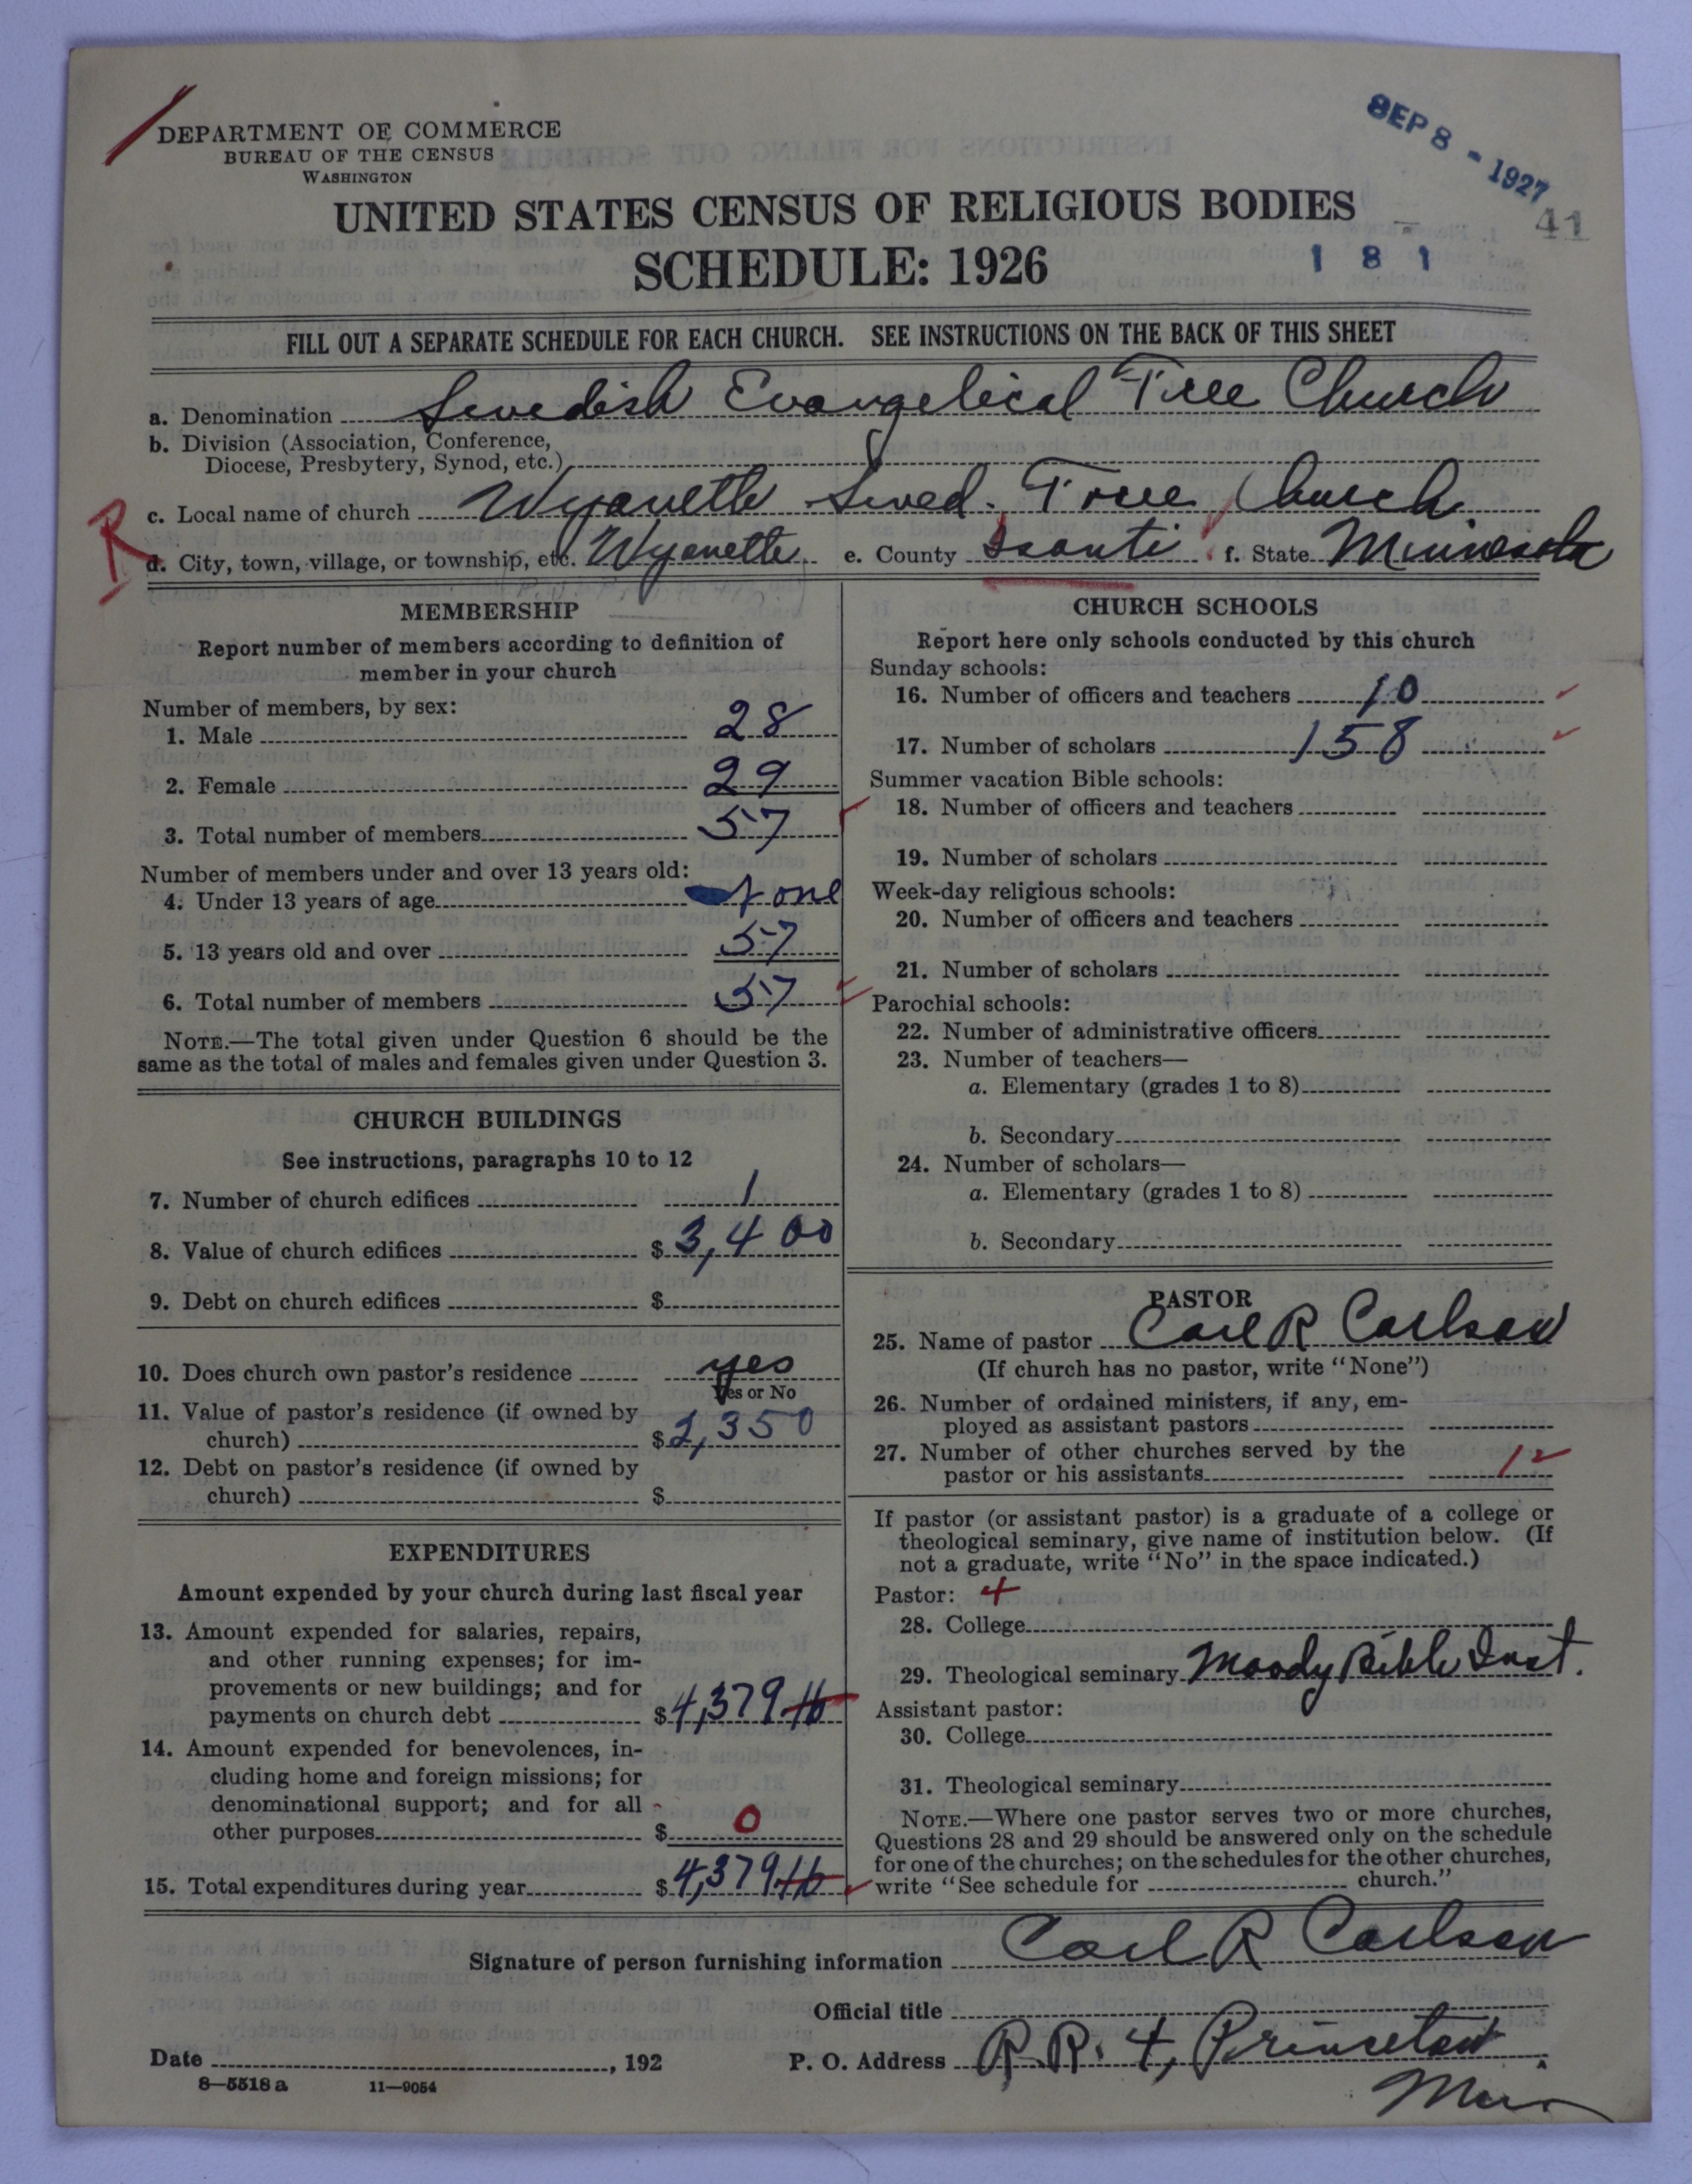 DEPARTMENT OF COMMERCE
BUREAU OF THE CENSUS
WASHINGTON
SEP 8 - 1927
41
UNITED STATES CENSUS OF RELIGIOUS BODIES
SCHEDULE: 1926
1 8 1
FILL OUT A SEPARATE SCHEDULE FOR EACH CHURCH. SEE INSTRUCTIONS ON THE BACK OF THIS SHEET
a. Denomination Swedish Evangelical Free Church
b. Division (Association, Conference,
Diocese, Presbytery, Synod, etc.)
c. Local name of church Wyanette Swed. Free Church
R
d. City, town, village, or township, etc. Wyanette e. County Isanti f. State Minnesota
MEMBERSHIP
Report number of members according to definition of
member in your church
Number of members, by sex:
1. Male 28
2. Female 29
3. Total number of members 57
Number of members under and over 13 years old:
4. Under 13 years of age
5. 13 years old and over 57
6. Total number of members 57
NOTE.—The total given under Question 6 should be the
same as the total of males and females given under Question 3.
CHURCH BUILDINGS
See instructions, paragraphs 10 to 12
7. Number of church edifices 1
8. Value of church edifices $ 3,400
9. Debt on church edifices $
10. Does church own pastor's residence yes
Yes or No
11. Value of pastor's residence (if owned by
church) $ 2,350
12. Debt on pastor's residence (if owned by
church) $
EXPENDITURES
Amount expended by your church during last fiscal year
13. Amount expended for salaries, repairs,
and other running expenses; for im-
provements or new buildings; and for
payments on church debt $ 4,379 16
14. Amount expended for benevolences, in-
cluding home and foreign missions; for
denominational support; and for all
other purposes $ 0
15. Total expenditures during year $ 4,379 16
CHURCH SCHOOLS
Report here only schools conducted by this church
Sunday schools:
16. Number of officers and teachers 10
17. Number of scholars 158
Summer vacation Bible schools:
18. Number of officers and teachers
19. Number of scholars
Week-day religious schools:
20. Number of officers and teachers
21. Number of scholars
Parochial schools:
22. Number of administrative officers
23. Number of teachers—
a. Elementary (grades 1 to 8)
b. Secondary
24. Number of scholars—
a. Elementary (grades 1 to 8)
b. Secondary
PASTOR
25. Name of pastor Carl R Carlson
(If church has no pastor, write "None")
26. Number of ordained ministers, if any, em-
ployed as assistant pastors
27. Number of other churches served by the
pastor or his assistants
If pastor (or assistant pastor) is a graduate of a college or
theological seminary, give name of institution below. (If
not a graduate, write "No" in the space indicated.)
Pastor: 4
28. College
29. Theological seminary Moody Bible Inst.
Assistant pastor:
30. College
31. Theological seminary
NOTE.—Where one pastor serves two or more churches,
Questions 28 and 29 should be answered only on the schedule
for one of the churches; on the schedules for the other churches,
write "See schedule for church."
Signature of person furnishing information Carl R Carlson
Official title
Date , 192
P. O. Address R. R. 4, Princeton
Minn
8—5518 a 11—9054